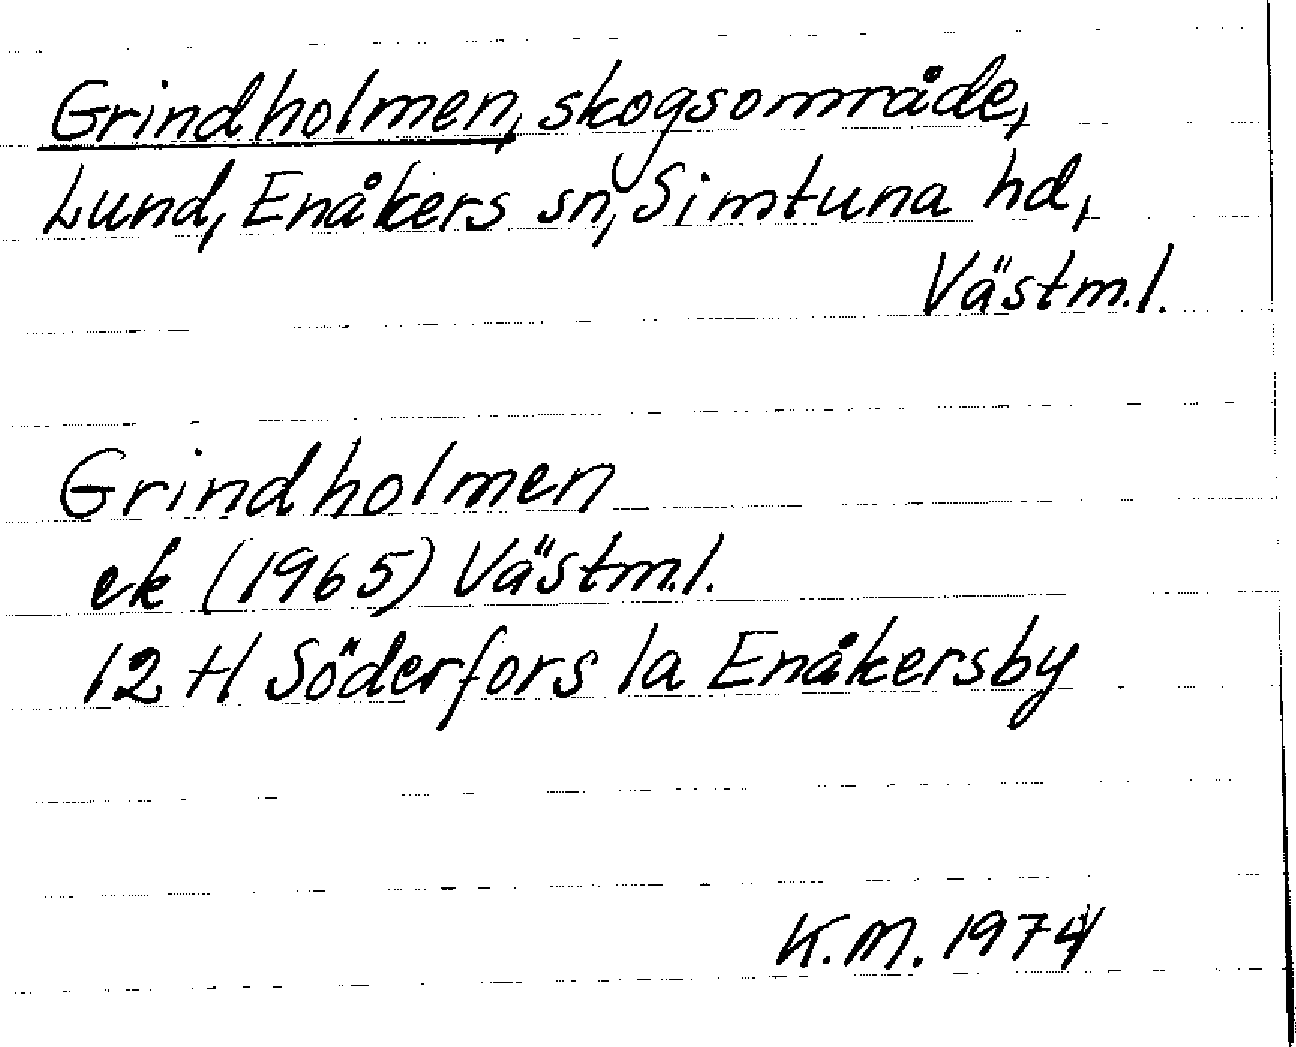 Grindholmen, skogsområde,
Lund, Enåkers sn, Simtuna hd,
Västm.l.
Grindholmen
ek (1965) Västm.l.
12 H Söderfors 1a Enåkersby
K.M. 1974